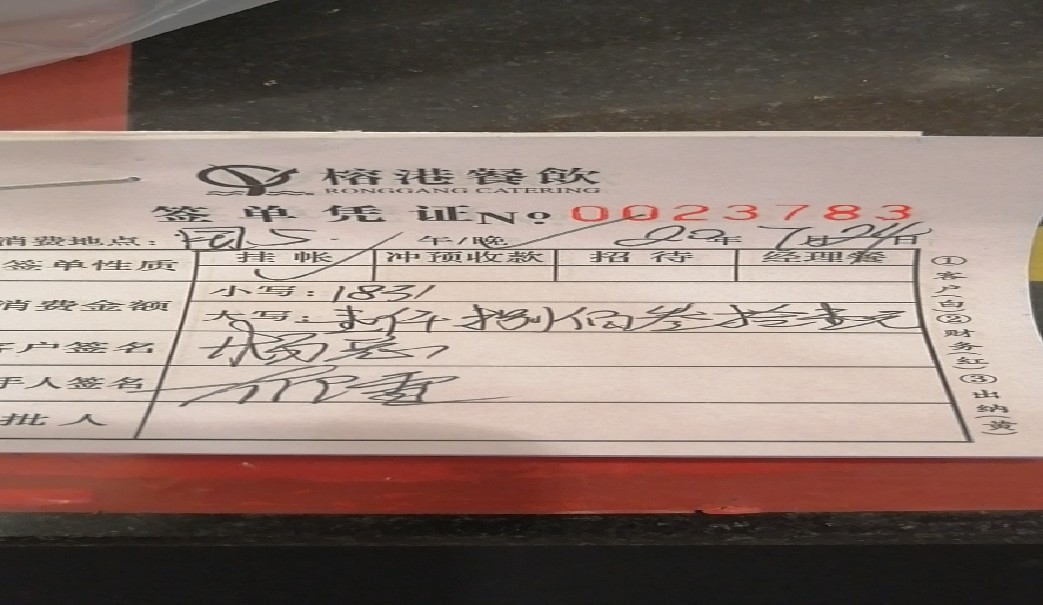 榕港餐飲
RONGGANG CATERING
签单凭证 No 0023783
消费地点： 午/晚 20年7月24日
签单性质 挂帐 冲预收款 招待 经理餐
消费金额 小写：1831
大写：壹仟捌佰叁拾壹元
客户签名
手人签名
批人
①客户(白)②财务(红)③出纳(黄)